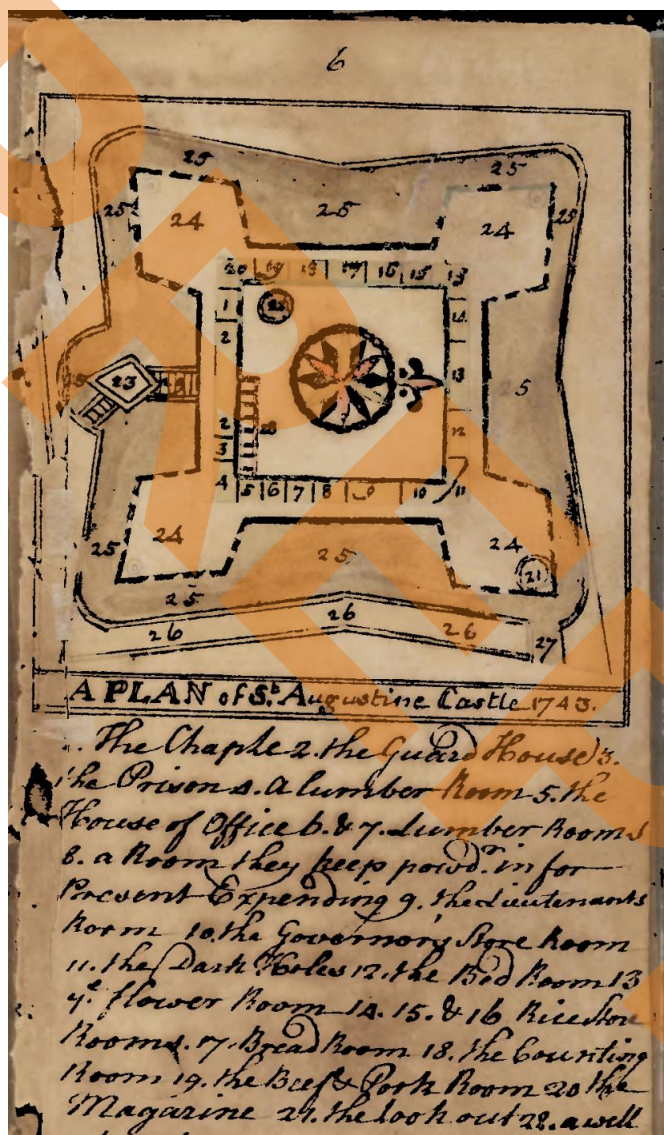 6
25 25
25 24 25 24 25
20 19 18 17 16 15 13
1 22 14
2
23 13 25
2 28 12
3
4 5 6 7 8 9 10 11
24 24
25 25 21
25
26 26 26 27
A PLAN of S.t Augustine Castle 1743.
1. The Chaple 2. the Guard House 3.
the Prison 4. a lumber Room 5. the
House of Office 6. & 7. Lumber Rooms
8. a Room they keep powd.r in for
Present Expending 9. the Lieutenants
Room 10. the Governors Store Room
11. the Dark Holes 12. the Bed Room 13
y.e flower Room 14. 15. & 16 Rice Store
Rooms. 17. Bread Room 18. the Counting
Room 19. the Beef & Pork Room 20 the
Magazine 21. the look out 22. a well